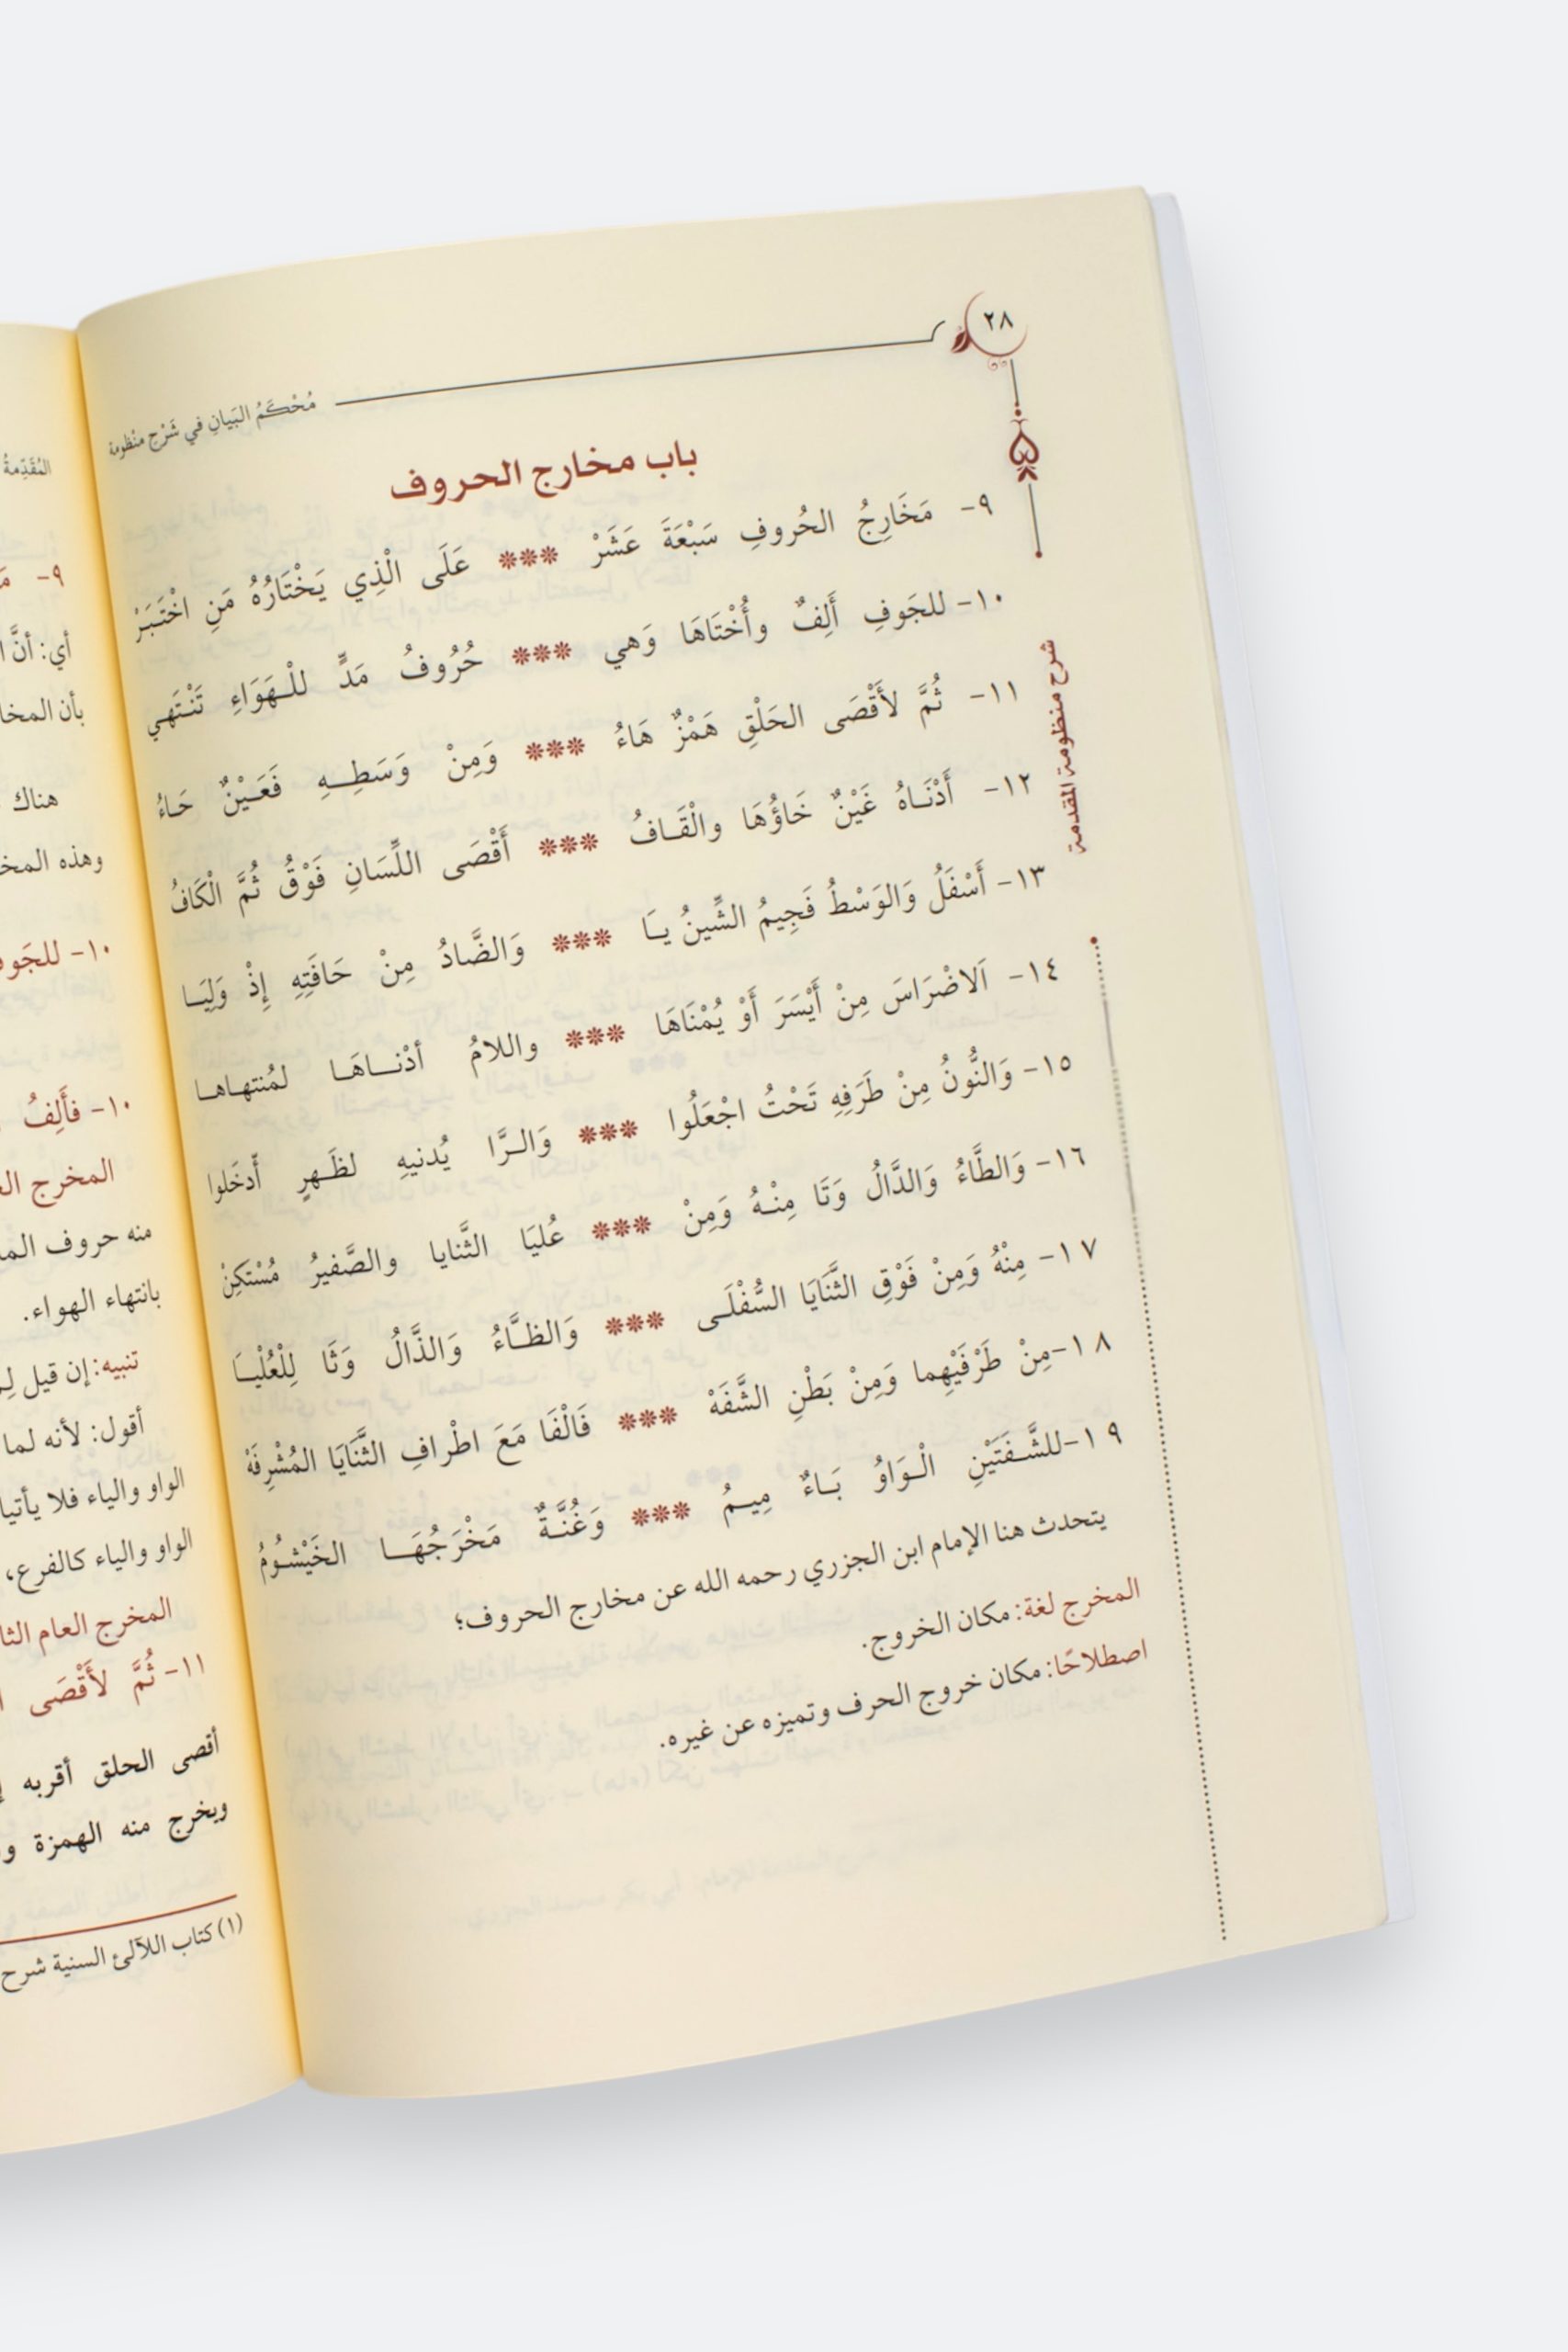 ٢٨
مُحْكَمُ البَيَانِ في شَرْحِ منْظومة
باب مخارج الحروف
٩- مَخَارِجُ الحُروفِ سَبْعَةَ عَشَرْ *** عَلَى الْذِي يَخْتَارُهُ مَنِ اخْتَبَرْ
١٠- للجَوفِ أَلِفٌ وأُخْتَاهَا وَهي *** حُرُوفُ مَدٍّ للْهَوَاءِ تَنْتَهي
١١- ثُمَّ لأَقْصَى الحَلْقِ هَمْزٌ هَاءُ *** وَمِنْ وَسَطِهِ فَعَيْنٌ حَاءُ
١٢- أَدْنَاهُ غَيْنٌ خَاؤُهَا والْقَافُ *** أَقْصَى اللِّسَانِ فَوْقُ ثُمَّ الْكَافُ
١٣- أَسْفَلُ وَالوَسْطُ فَجِيمُ الشِّينُ يَا *** وَالضَّادُ مِنْ حَافَتِهِ إِذْ وَلِيَا
١٤- اَلاضْرَاسَ مِنْ أَيْسَرَ أَوْ يُمْنَاهَا *** واللامُ أدْنَاهَا لمُنتهاها
١٥- وَالنُّونُ مِنْ طَرَفِهِ تَحْتُ اجْعَلُوا *** وَالرَّا يُدنيهِ لظَهرٍ أدخَلوا
١٦- وَالطَّاءُ وَالدَّالُ وَتَا مِنْهُ وَمِنْ *** عُليَا الثَّنايا والصَّفيرُ مُسْتَكِنْ
١٧- مِنْهُ وَمِنْ فَوْقِ الثَّنَايَا السُّفْلَى *** وَالظَّاءُ وَالذَّالُ وَثَا لِلْعُلْيَا
١٨-مِنْ طَرْفَيْهِما وَمِنْ بَطْنِ الشَّفَهْ *** فَالْفَا مَعَ اطْرافِ الثَّنَايَا المُشْرِفَهْ
١٩-للشَّفَتَيْنِ الْوَاوُ بَاءٌ مِيمُ *** وَغُنَّةٌ مَخْرَجُهَا الخَيْشُومُ
يتحدث هنا الإمام ابن الجزري رحمه الله عن مخارج الحروف؛
المخرج لغة: مكان الخروج.
اصطلاحًا: مكان خروج الحرف وتميزه عن غيره.
شرح منظومة المقدمة
المُقَدِّمةُ
٩-
أي: أنَّ
بأن
هناك
وهذه
١٠-
١٠- فأَلِفُ
المخرج
منه حروف
بانتهاء الهواء.
تنبيه: إن قيل
أقول: لأنه لما
الواو والياء فلا
الواو والياء كالفرع،
المخرج العام
١١- ثُمَّ لأَقْصَى
أقصى الحلق أقربه
ويخرج منه الهمزة
(١) كتاب اللآلئ السنية شرح